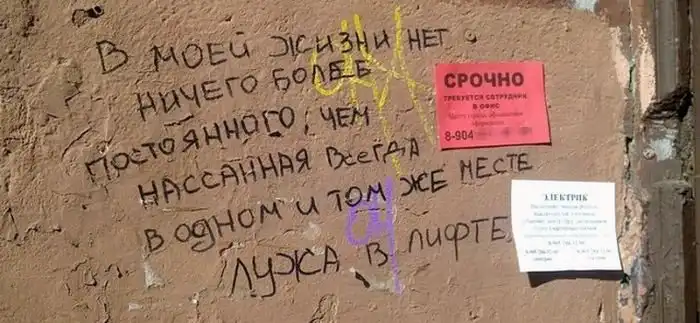 В МОЕЙ ЖИЗНИ НЕТ
НИЧЕГО БОЛЕЕ
ПОСТОЯННОГО, ЧЕМ
НАССАННАЯ ВСЕГДА
В ОДНОМ И ТОМ ЖЕ МЕСТЕ
ЛУЖА В ЛИФТЕ.
СРОЧНО
ТРЕБУЕТСЯ СОТРУДНИК
В ОФИС
8-904
ЭЛЕКТРИК